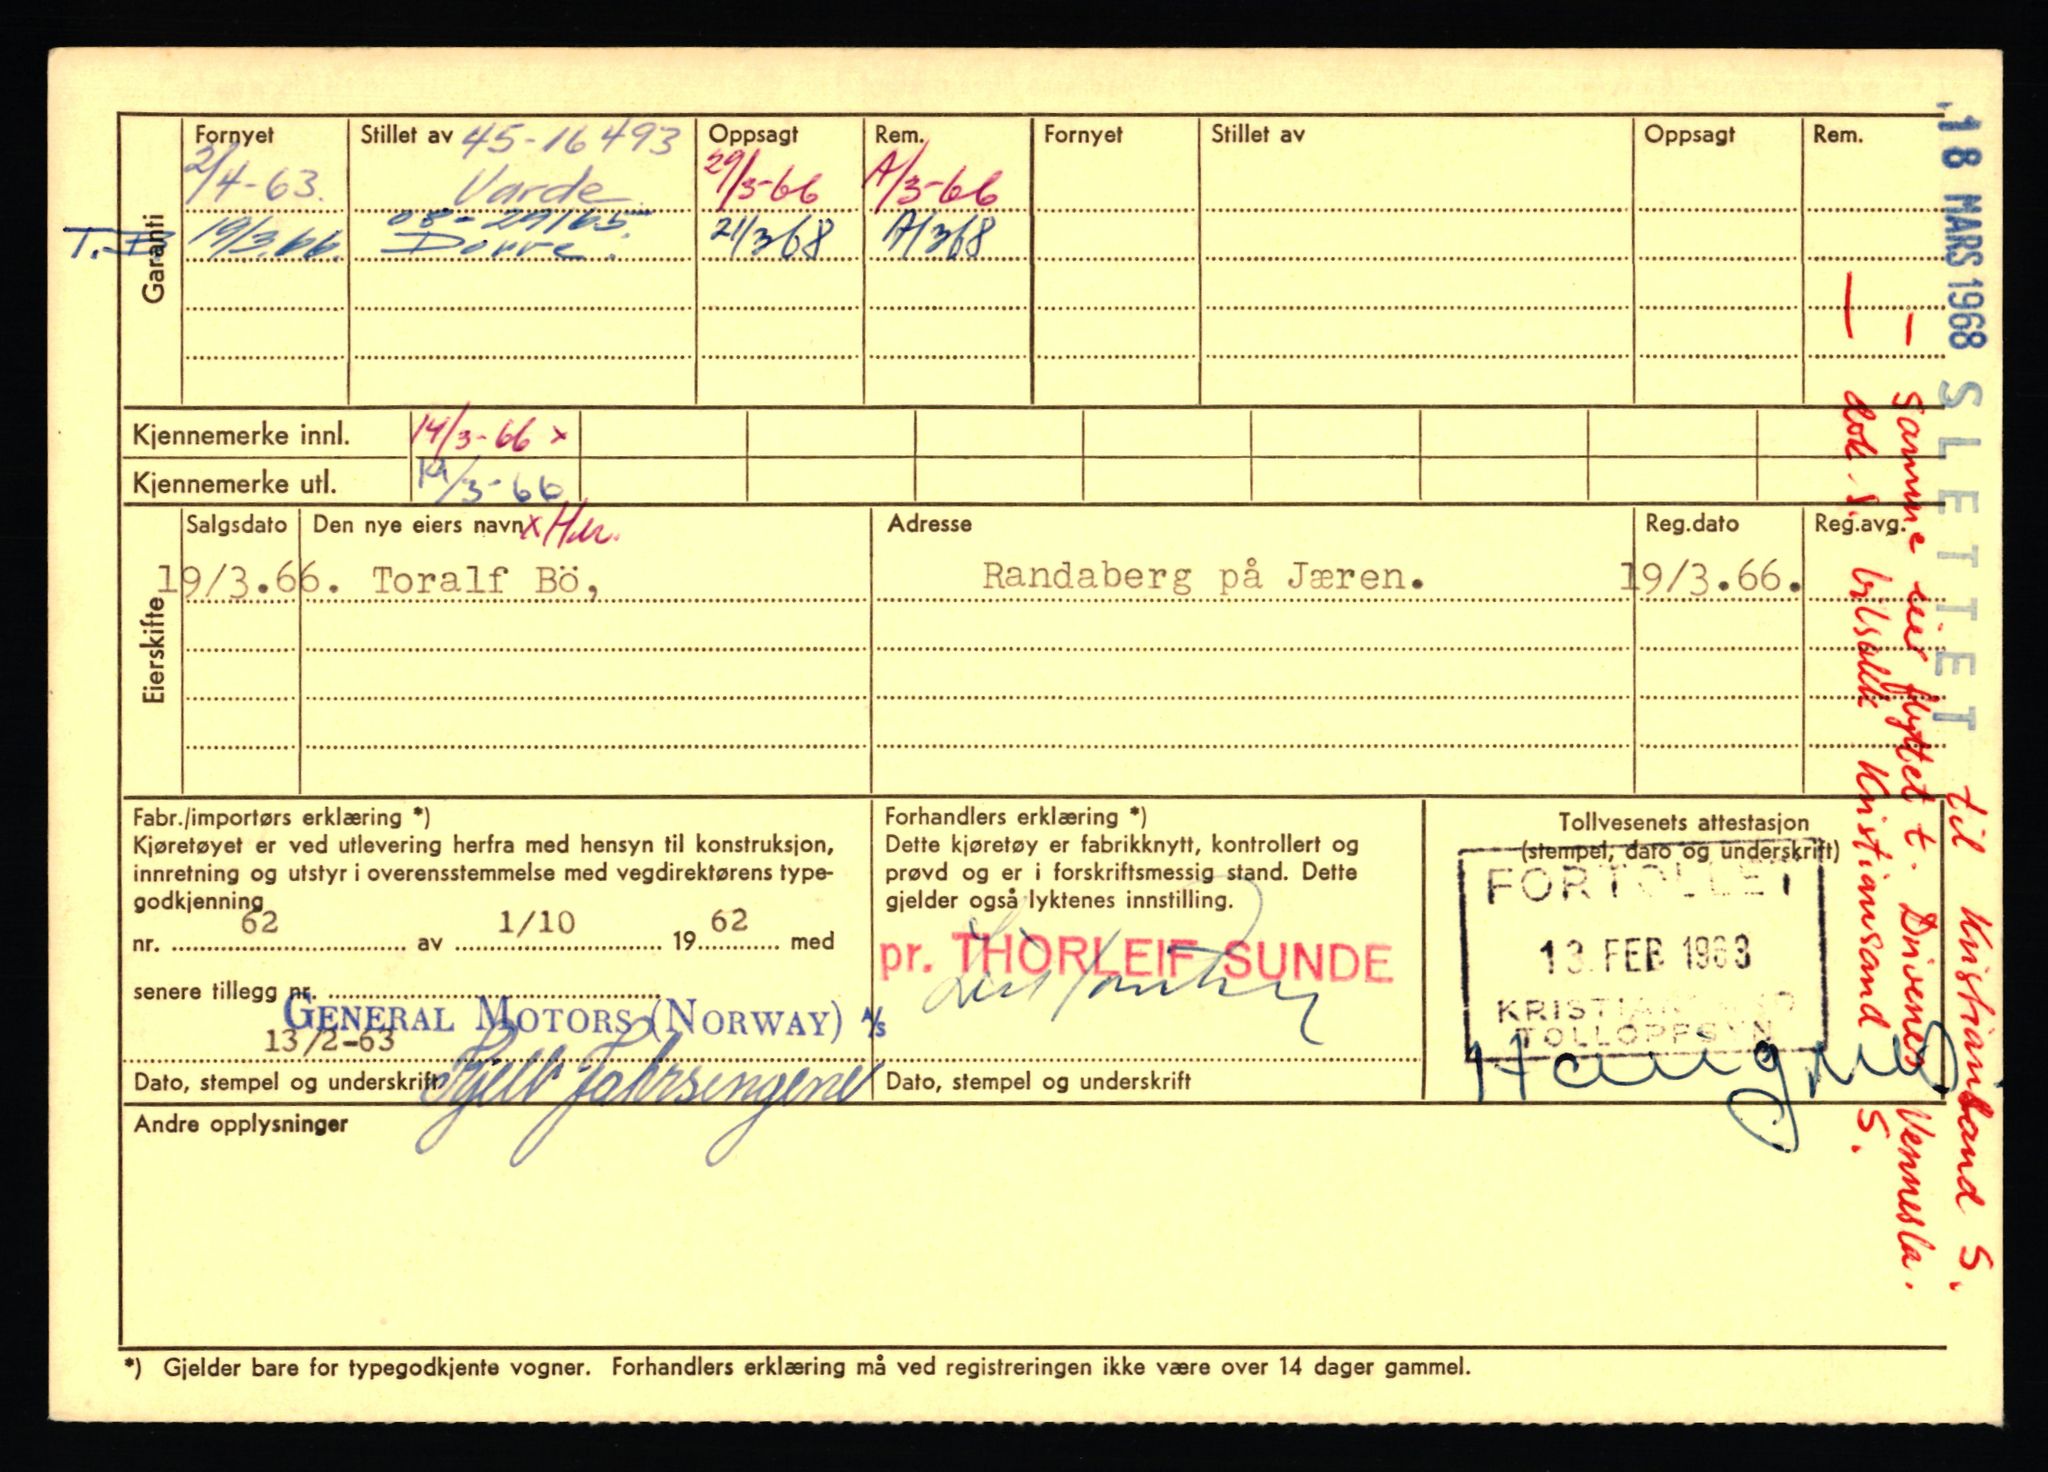 Garanti
Fornyet Stillet av 45-16493 Oppsagt Rem. Fornyet Stillet av Oppsagt Rem.
2/4-63. Varde 29/3-66 A/3-66
19/3.66. 21/3 68 A/3 68
Kjennemerke innl. 14/3-66 x
Kjennemerke utl. 19/3-66
Eierskifte
Salgsdato Den nye eiers navn x Her. Adresse Reg.dato Reg.avg.
19/3.66. Toralf Bö, Randaberg på Jæren. 19/3.66.
Fabr./importørs erklæring *)
Kjøretøyet er ved utlevering herfra med hensyn til konstruksjon,
innretning og utstyr i overensstemmelse med vegdirektørens type-
godkjenning
nr. 62 av 1/10 19 62 med
senere tillegg nr.
GENERAL MOTORS (NORWAY) A/S
13/2-63
Dato, stempel og underskrift
Forhandlers erklæring *)
Dette kjøretøy er fabrikknytt, kontrollert og
prøvd og er i forskriftsmessig stand. Dette
gjelder også lyktenes innstilling.
pr. THORLEIF SUNDE
Dato, stempel og underskrift
Tollvesenets attestasjon
(stempel, dato og underskrift)
FORTOLLET
13. FEB 1963
KRISTIANSAND
TOLLOPPSYN
Andre opplysninger
*) Gjelder bare for typegodkjente vogner. Forhandlers erklæring må ved registreringen ikke være over 14 dager gammel.
18 MARS 1968 SLETTET til Kristiansand S.
- Samme eier flyttet t. Drivenes Vennesla.
- dok. S. bilsakk Kristiansand S.